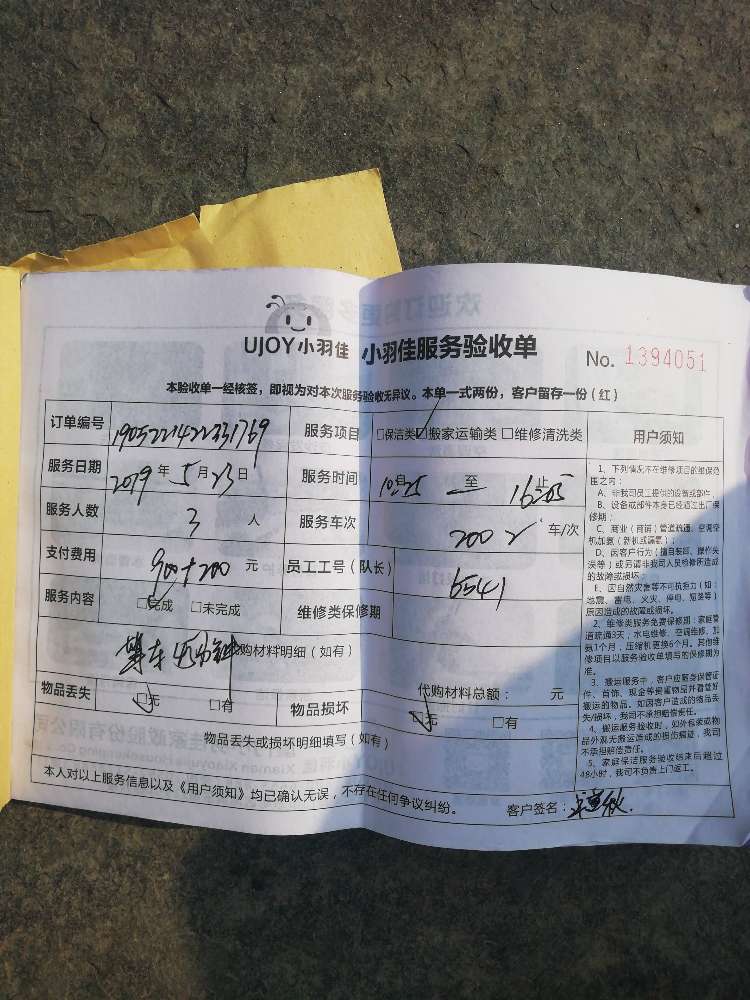 UJOY小羽佳 小羽佳服务验收单 No. 1394051
本验收单一经核签，即视为对本次服务验收无异议。本单一式两份，客户留存一份（红）
订单编号 服务项目 □保洁类 □搬家运输类 □维修清洗类 用户须知
服务日期 2019年5月23日 服务时间 至 止
服务人数 3 人 服务车次 200 车/次
支付费用 900+200 元 员工工号（队长） 6541
服务内容 □完成 □未完成 维修类保修期
等车45分钟 代购材料明细（如有）
代购材料总额： 元
物品丢失 □无 □有 物品损坏 □无 □有
物品丢失或损坏明细填写（如有）
本人对以上服务信息以及《用户须知》均已确认无误，不存在任何争议纠纷。 客户签名：
1、下列情况不在维修项目的维保范
围之内：
A、非我司员工提供的设备或部件
B、设备或部件本身已经过出厂保
修期；
C、商业（商铺）管道疏通、空调空
机加氨（新机或漏氨）；
D、因客户行为（擅自装卸、操作失
误等）或另请非我司人员检修所造成
的故障或损坏；
E、因自然灾害等不可抗拒力（如：
地震、雷电、火灾、停电、短装等）
原因造成的故障或损坏。
2、维修类服务免费保修期：家庭管
道疏通3天，水电维修、空调维修、加
氨1个月，压缩机更换6个月。其他维
修项目以服务验收单填写的保修期为
准。
3、搬运服务中，客户应随身保管证
件、首饰、现金等贵重物品并看管好
搬运的物品。如因客户造成的物品丢
失/损坏，我司不承担赔偿责任。
4、搬运服务验收时，如外包装或物
品外观无搬运造成的损伤痕迹，我司不
承担赔偿责任。
5、家庭保洁服务验收结束后超过
48小时，我司不负责上门返工。